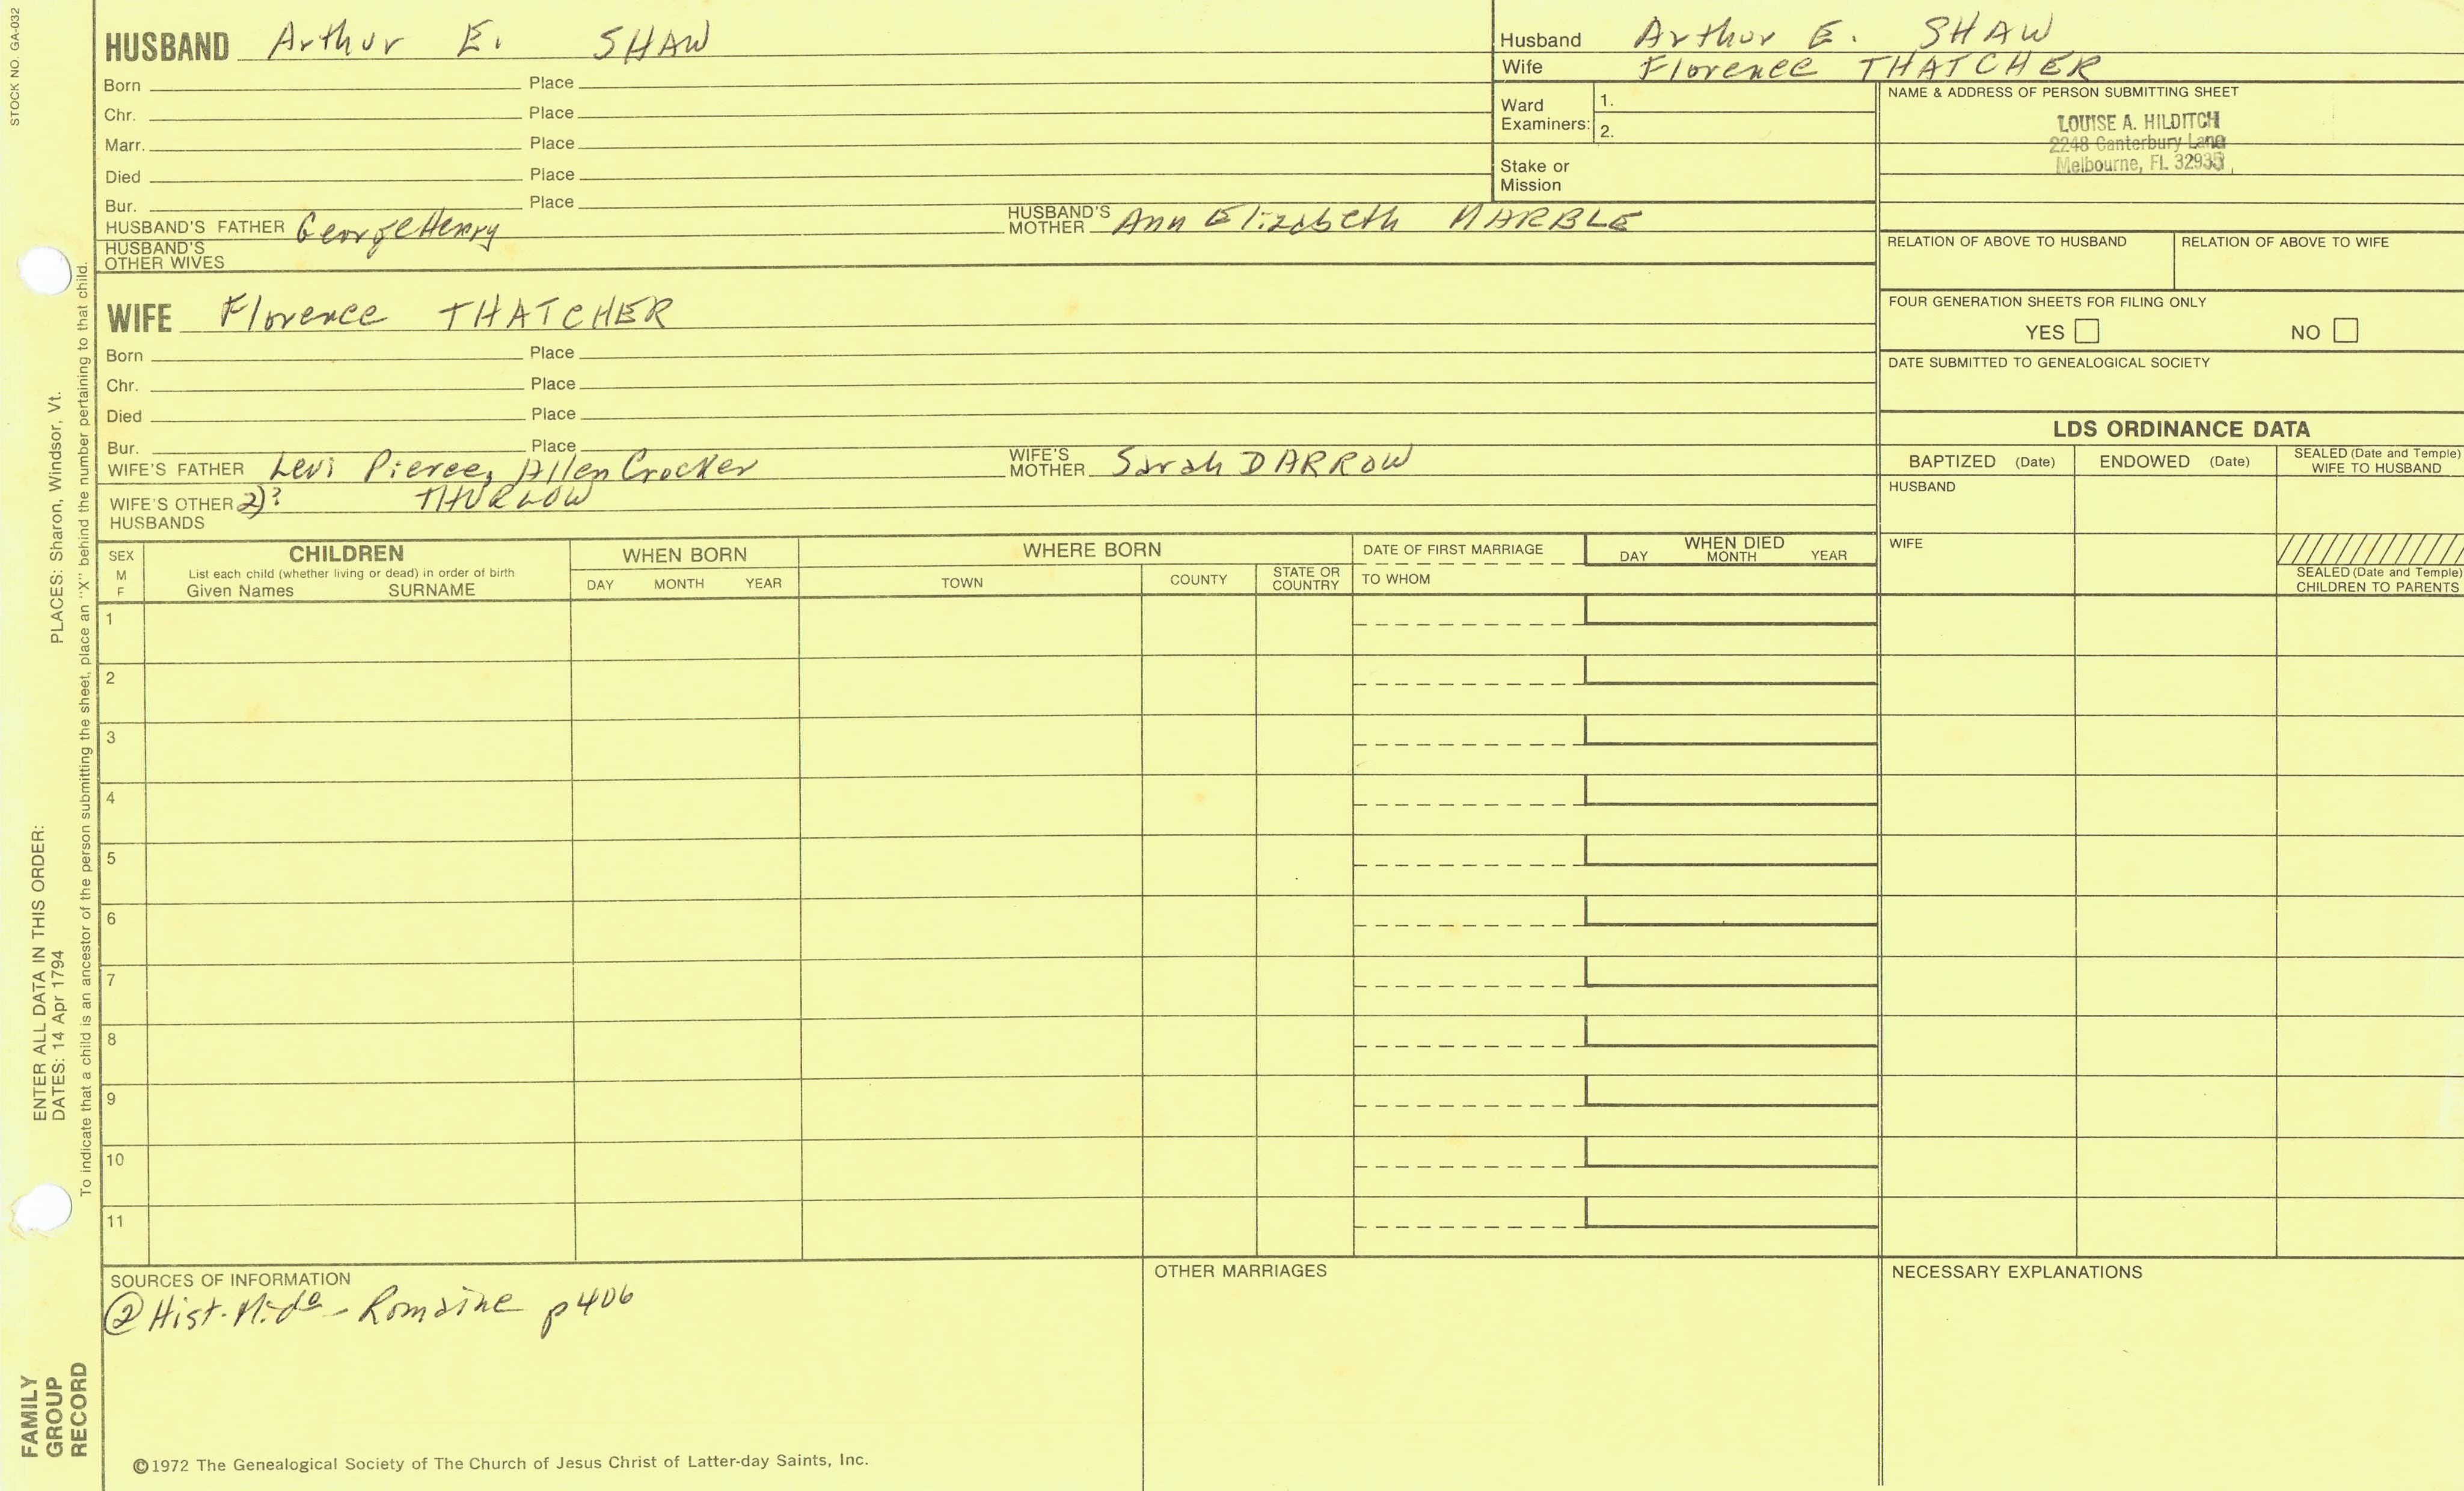 STOCK NO. GA-032
HUSBAND Arthur E. SHAW
Born Place
Chr. Place
Marr. Place
Died Place
Bur. Place
HUSBAND'S FATHER George Henry HUSBAND'S MOTHER Ann Elizabeth MARBLE
HUSBAND'S OTHER WIVES
WIFE Florence THATCHER
Born Place
Chr. Place
Died Place
Bur. Place
WIFE'S FATHER Levi Pierce, Allen Crocker WIFE'S MOTHER Sarah DARROW
WIFE'S OTHER HUSBANDS 2)? THURLOW
Husband Arthur E. SHAW
Wife Florence THATCHER
Ward Examiners: 1.
2.
Stake or Mission
NAME & ADDRESS OF PERSON SUBMITTING SHEET
LOUISE A. HILDITCH
2248 Canterbury Lane
Melbourne, FL 32935
RELATION OF ABOVE TO HUSBAND RELATION OF ABOVE TO WIFE
FOUR GENERATION SHEETS FOR FILING ONLY
YES NO
DATE SUBMITTED TO GENEALOGICAL SOCIETY
LDS ORDINANCE DATA
BAPTIZED (Date) ENDOWED (Date) SEALED (Date and Temple) WIFE TO HUSBAND
HUSBAND
WIFE
SEALED (Date and Temple) CHILDREN TO PARENTS
SEX M F
CHILDREN
List each child (whether living or dead) in order of birth
Given Names SURNAME
WHEN BORN
DAY MONTH YEAR
WHERE BORN
TOWN COUNTY STATE OR COUNTRY
DATE OF FIRST MARRIAGE
TO WHOM
WHEN DIED
DAY MONTH YEAR
1
2
3
4
5
6
7
8
9
10
11
SOURCES OF INFORMATION
Romaine p406
OTHER MARRIAGES
NECESSARY EXPLANATIONS
©1972 The Genealogical Society of The Church of Jesus Christ of Latter-day Saints, Inc.
FAMILY
GROUP
RECORD
ENTER ALL DATA IN THIS ORDER:
DATES: 14 Apr 1794 PLACES: Sharon, Windsor, Vt.
To indicate that a child is an ancestor of the person submitting the sheet, place an "X" behind the number pertaining to that child.